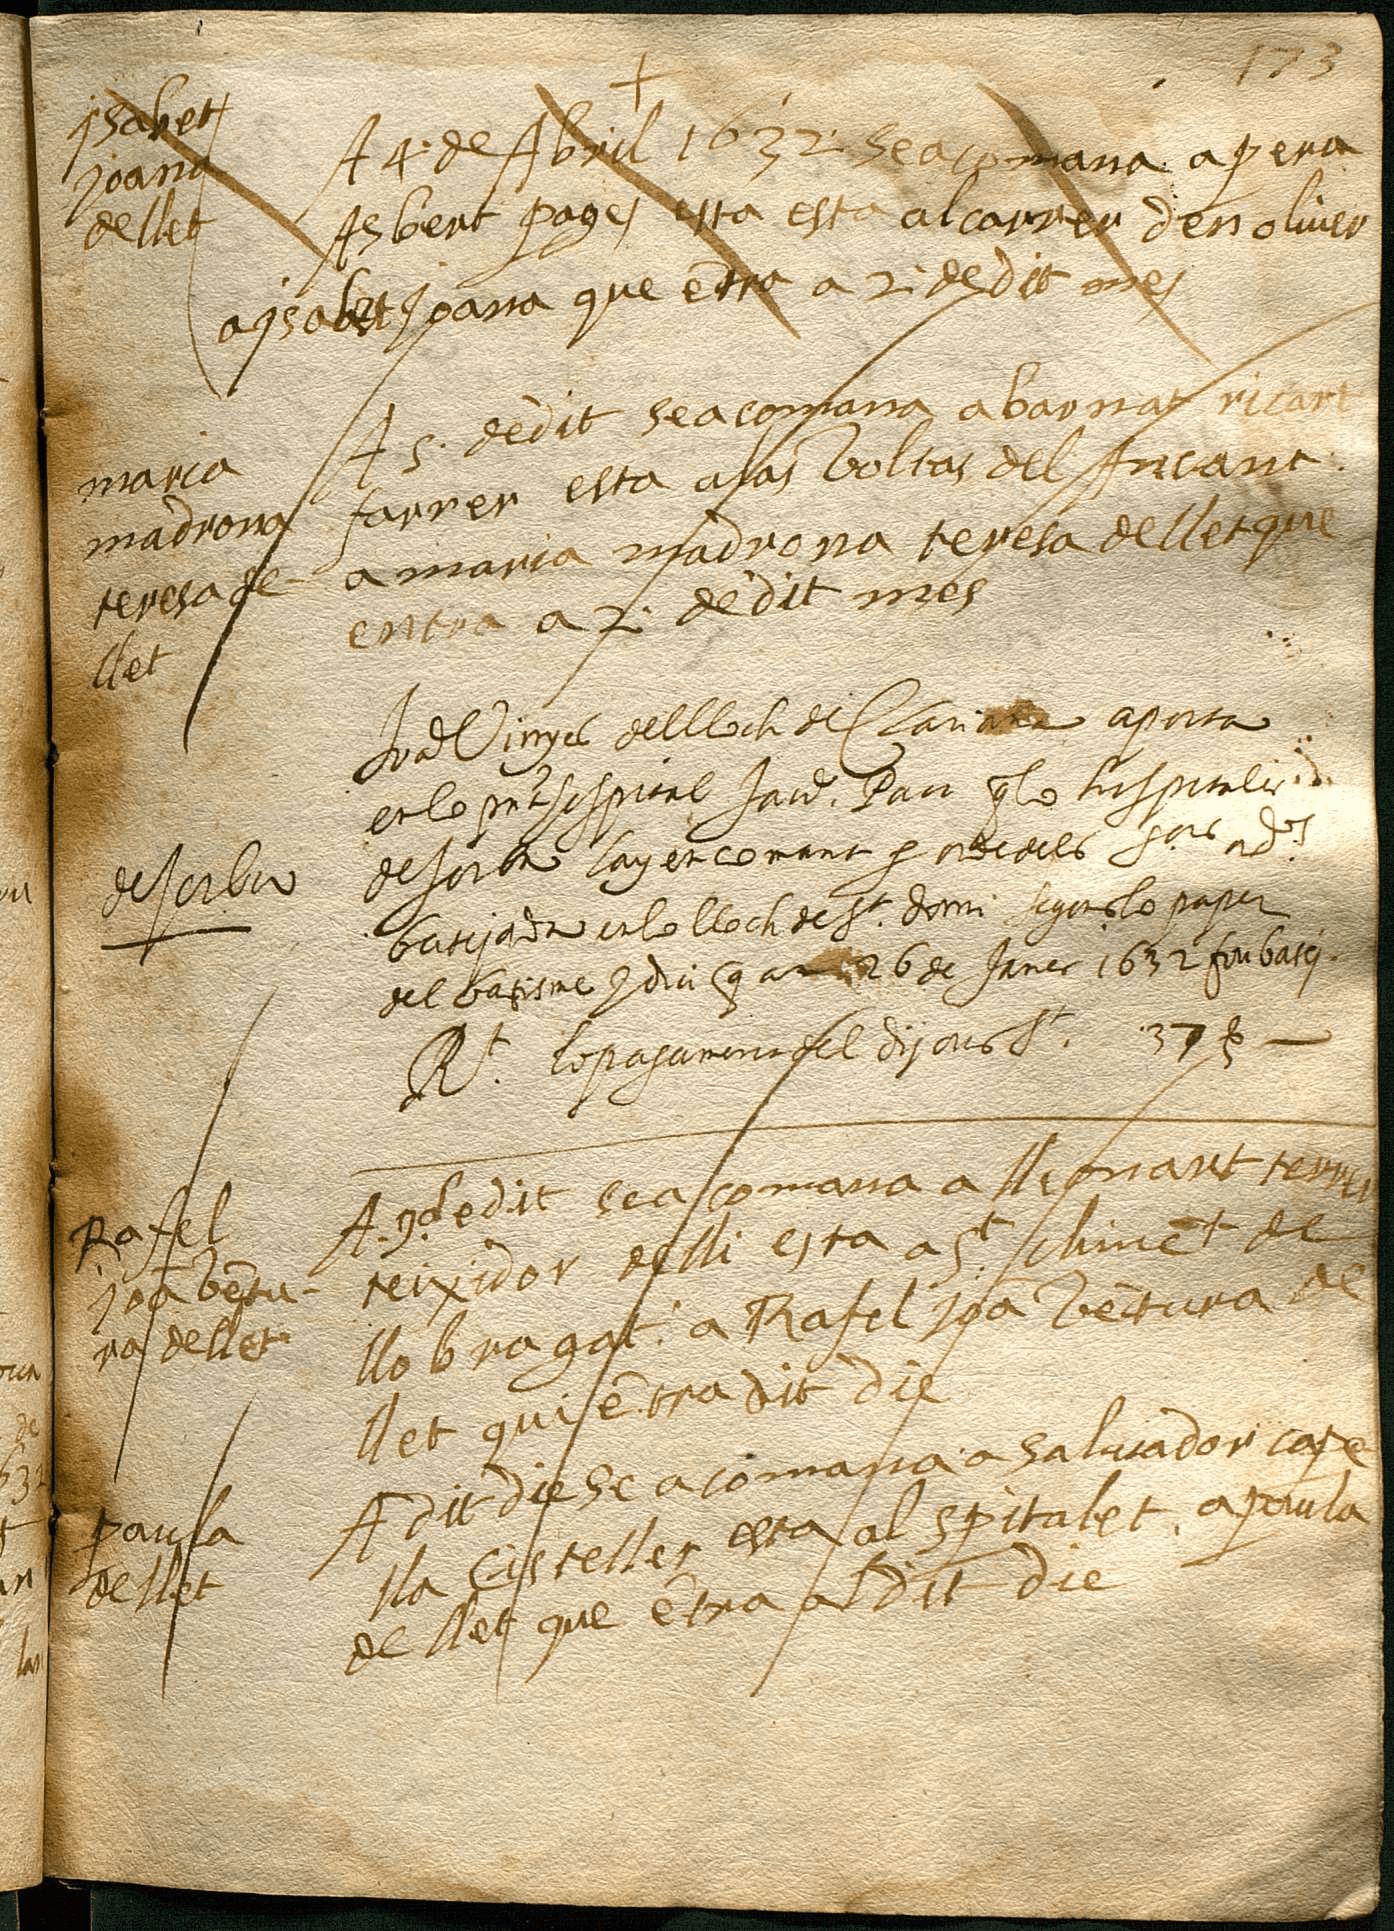 173
+
jsabet
joana
dellet
A 4. de Abril 1632 se acomana a pera
Asbert pages esta esta al carrer den oliver
a jsabet joana que ētra a 2. de dit mes
maria
madrona
teresa de
llet
A 5. de dit se acomana a barnat ricart
farrer esta a las voltas del Ancant.
a maria madrona teresa de llet que
entra a 2. de dit mes
de Jorba
Vinyes dell lloch de Clariana aporta
en lo hospital Pau hospitaler
de Jorba lay encomanat
batejada en lo lloch de St. domi segons lo paper
del batisme 26 de Janer 1632 fou batej.
Rt. lo pagament del dijous St. 37
Rafel
joā bētu-
ra dellet
A 9. de dit se acomana a lleonart terrer
teixidor de lli esta a St. climēt de
llobragat. a Rafel joā vētura de
llet qui ētra dit die
paula
de llet
A dit die se acomana a saluador cape
lla Cisteller esta al spitalet. a paula
de llet que ētra al dit die